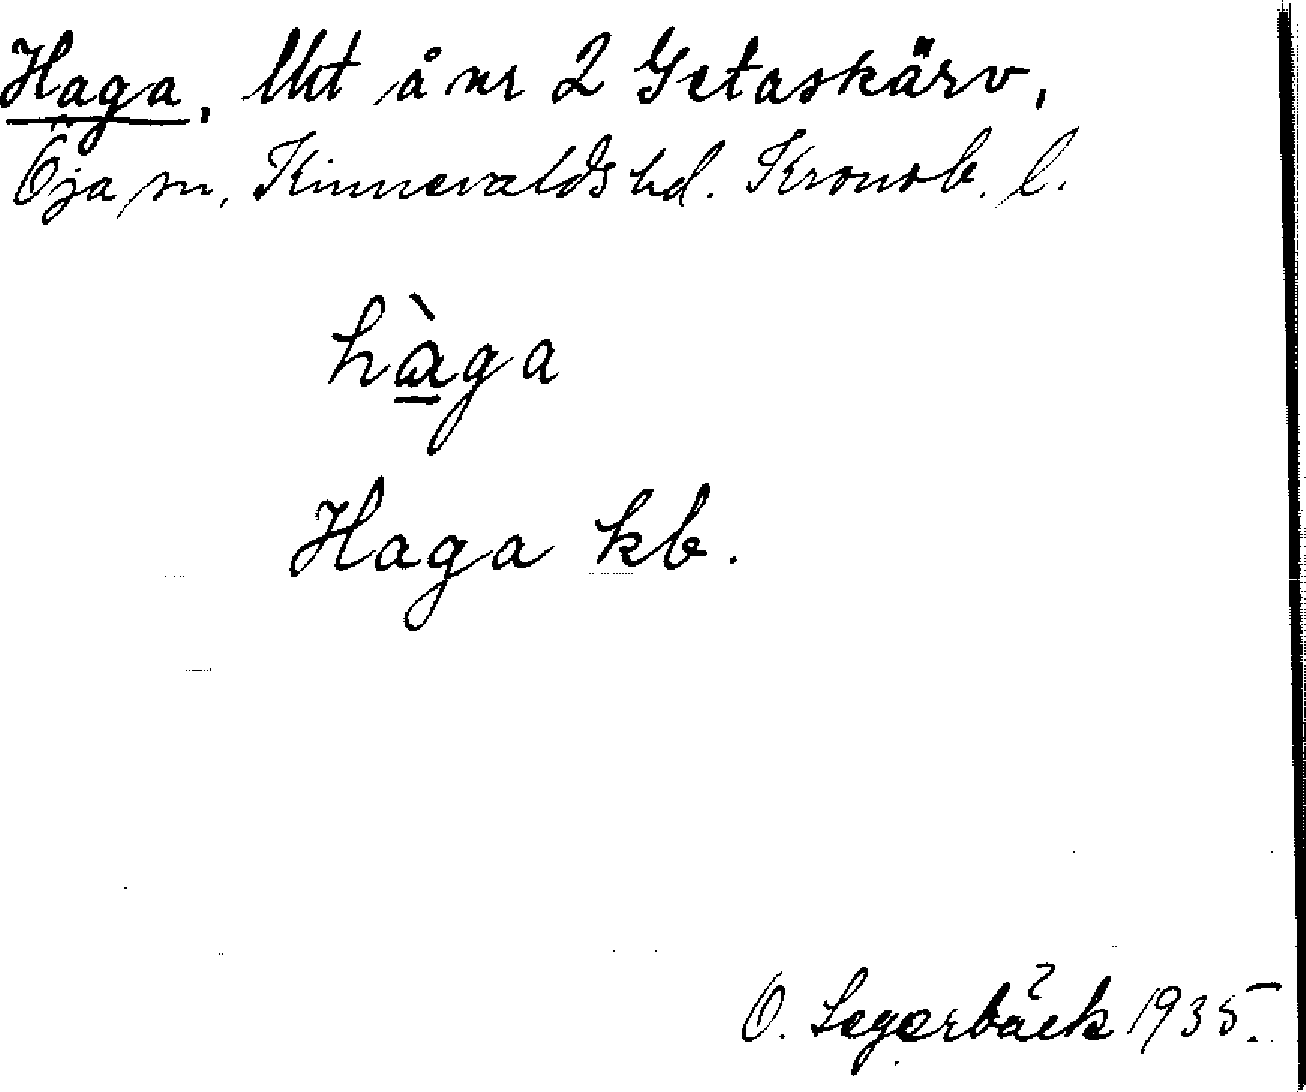 Haga, Uct å nr 2 Getaskärv,
Öja sn, Kinnevalds hd. Kronob. l.
hàga
Haga kb.
O. Segerbäck 1935.